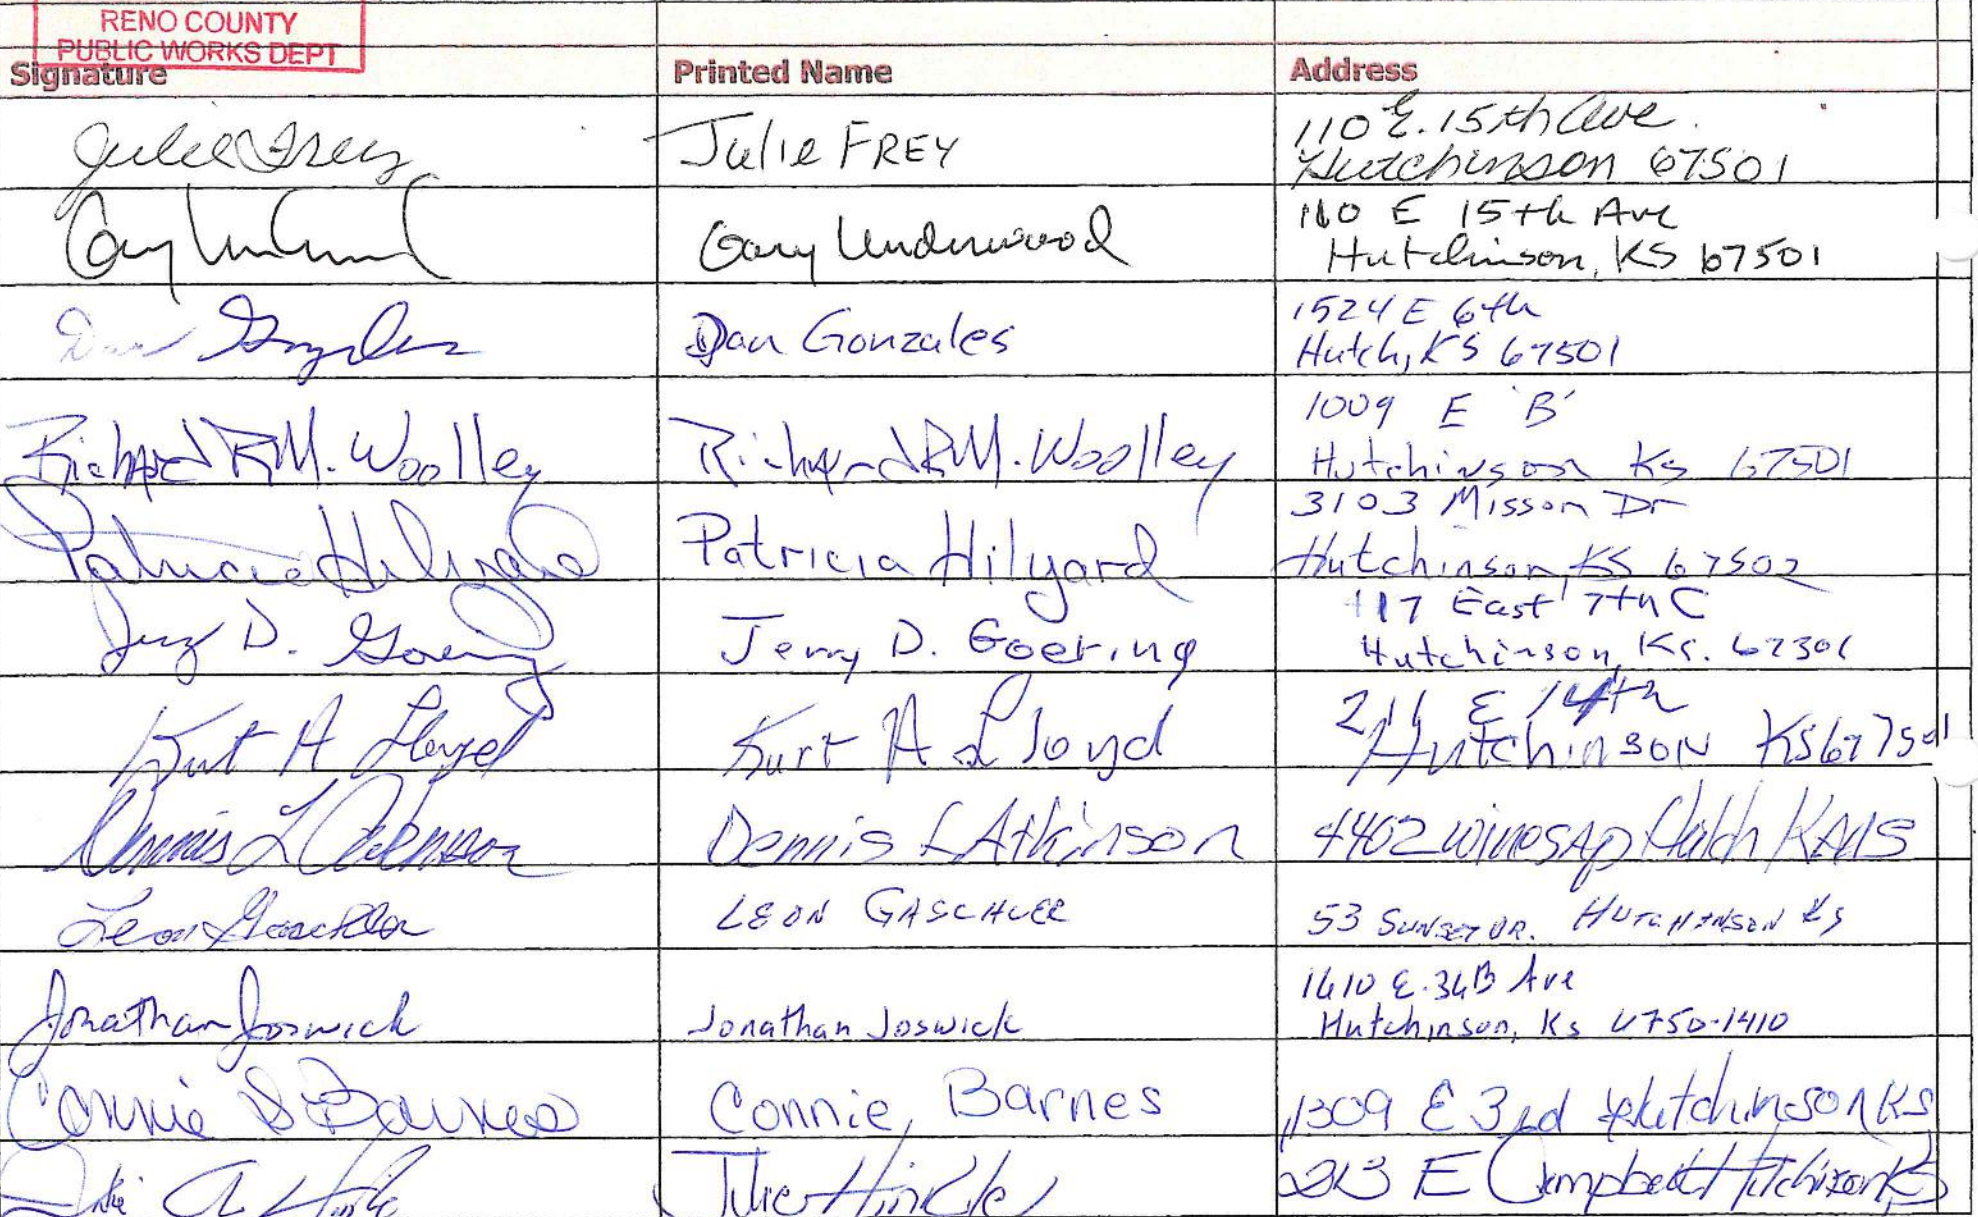 RENO COUNTY
PUBLIC WORKS DEPT
Signature Printed Name Address
Julie Frey Julie FREY 110 E. 15th Ave.
Hutchinson 67501
Gary Underwood 110 E 15th Ave
Hutchinson, KS 67501
Dan Gonzales Dan Gonzales 1524 E 6th
Hutch, KS 67501
Richard R M. Woolley Richard R M. Woolley 1009 E 'B'
Hutchinson Ks 67501
Patricia Hilyard Patricia Hilyard 3103 Misson Dr
Hutchinson, KS 67502
Jerry D. Goering Jerry D. Goering 117 East 7th C
Hutchinson, Ks. 67301
Kurt A Lloyd Kurt A Lloyd 211 E 14th
Hutchinson KS 67501
Dennis L Atkinson Dennis L Atkinson 4402 Winesap Hutch KANS
Leon Gaschler LEON GASCHLER 53 SUNSET DR. HUTCHINSON KS
Jonathan Joswick Jonathan Joswick 1610 E. Ave
Hutchinson, Ks
Connie S Barnes Connie Barnes 1309 E 3rd Hutchinson KS
Julie A Hinkle Julie Hinkle E Campbell Hutchinson KS